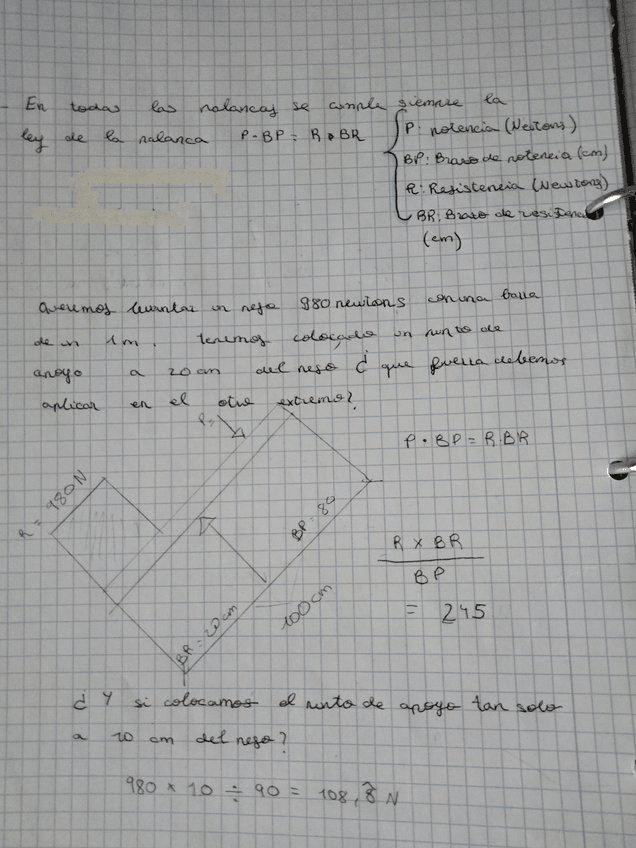 - En todas las palancas se cumple siempre la
ley de la palanca P·BP = R·BR
P: potencia (Newtons)
BP: Brazo de potencia (cm)
R: Resistencia (Newtons)
BR: Brazo de resistencia
(cm)
queremos levantar un peso 980 newtons con una barra
de un 1m. tenemos colocado un punto de
apoyo a 20 cm del peso ¿ que fuerza debemos
aplicar en el otro extremo?
P=
P · BP = R·BR
R = 980 N
BP = 80
R x BR
BP
= 245
100 cm
BR = 20 cm
¿ Y si colocamos el punto de apoyo tan solo
a 10 cm del peso?
980 x 10 ÷ 90 = 108,8̂ N